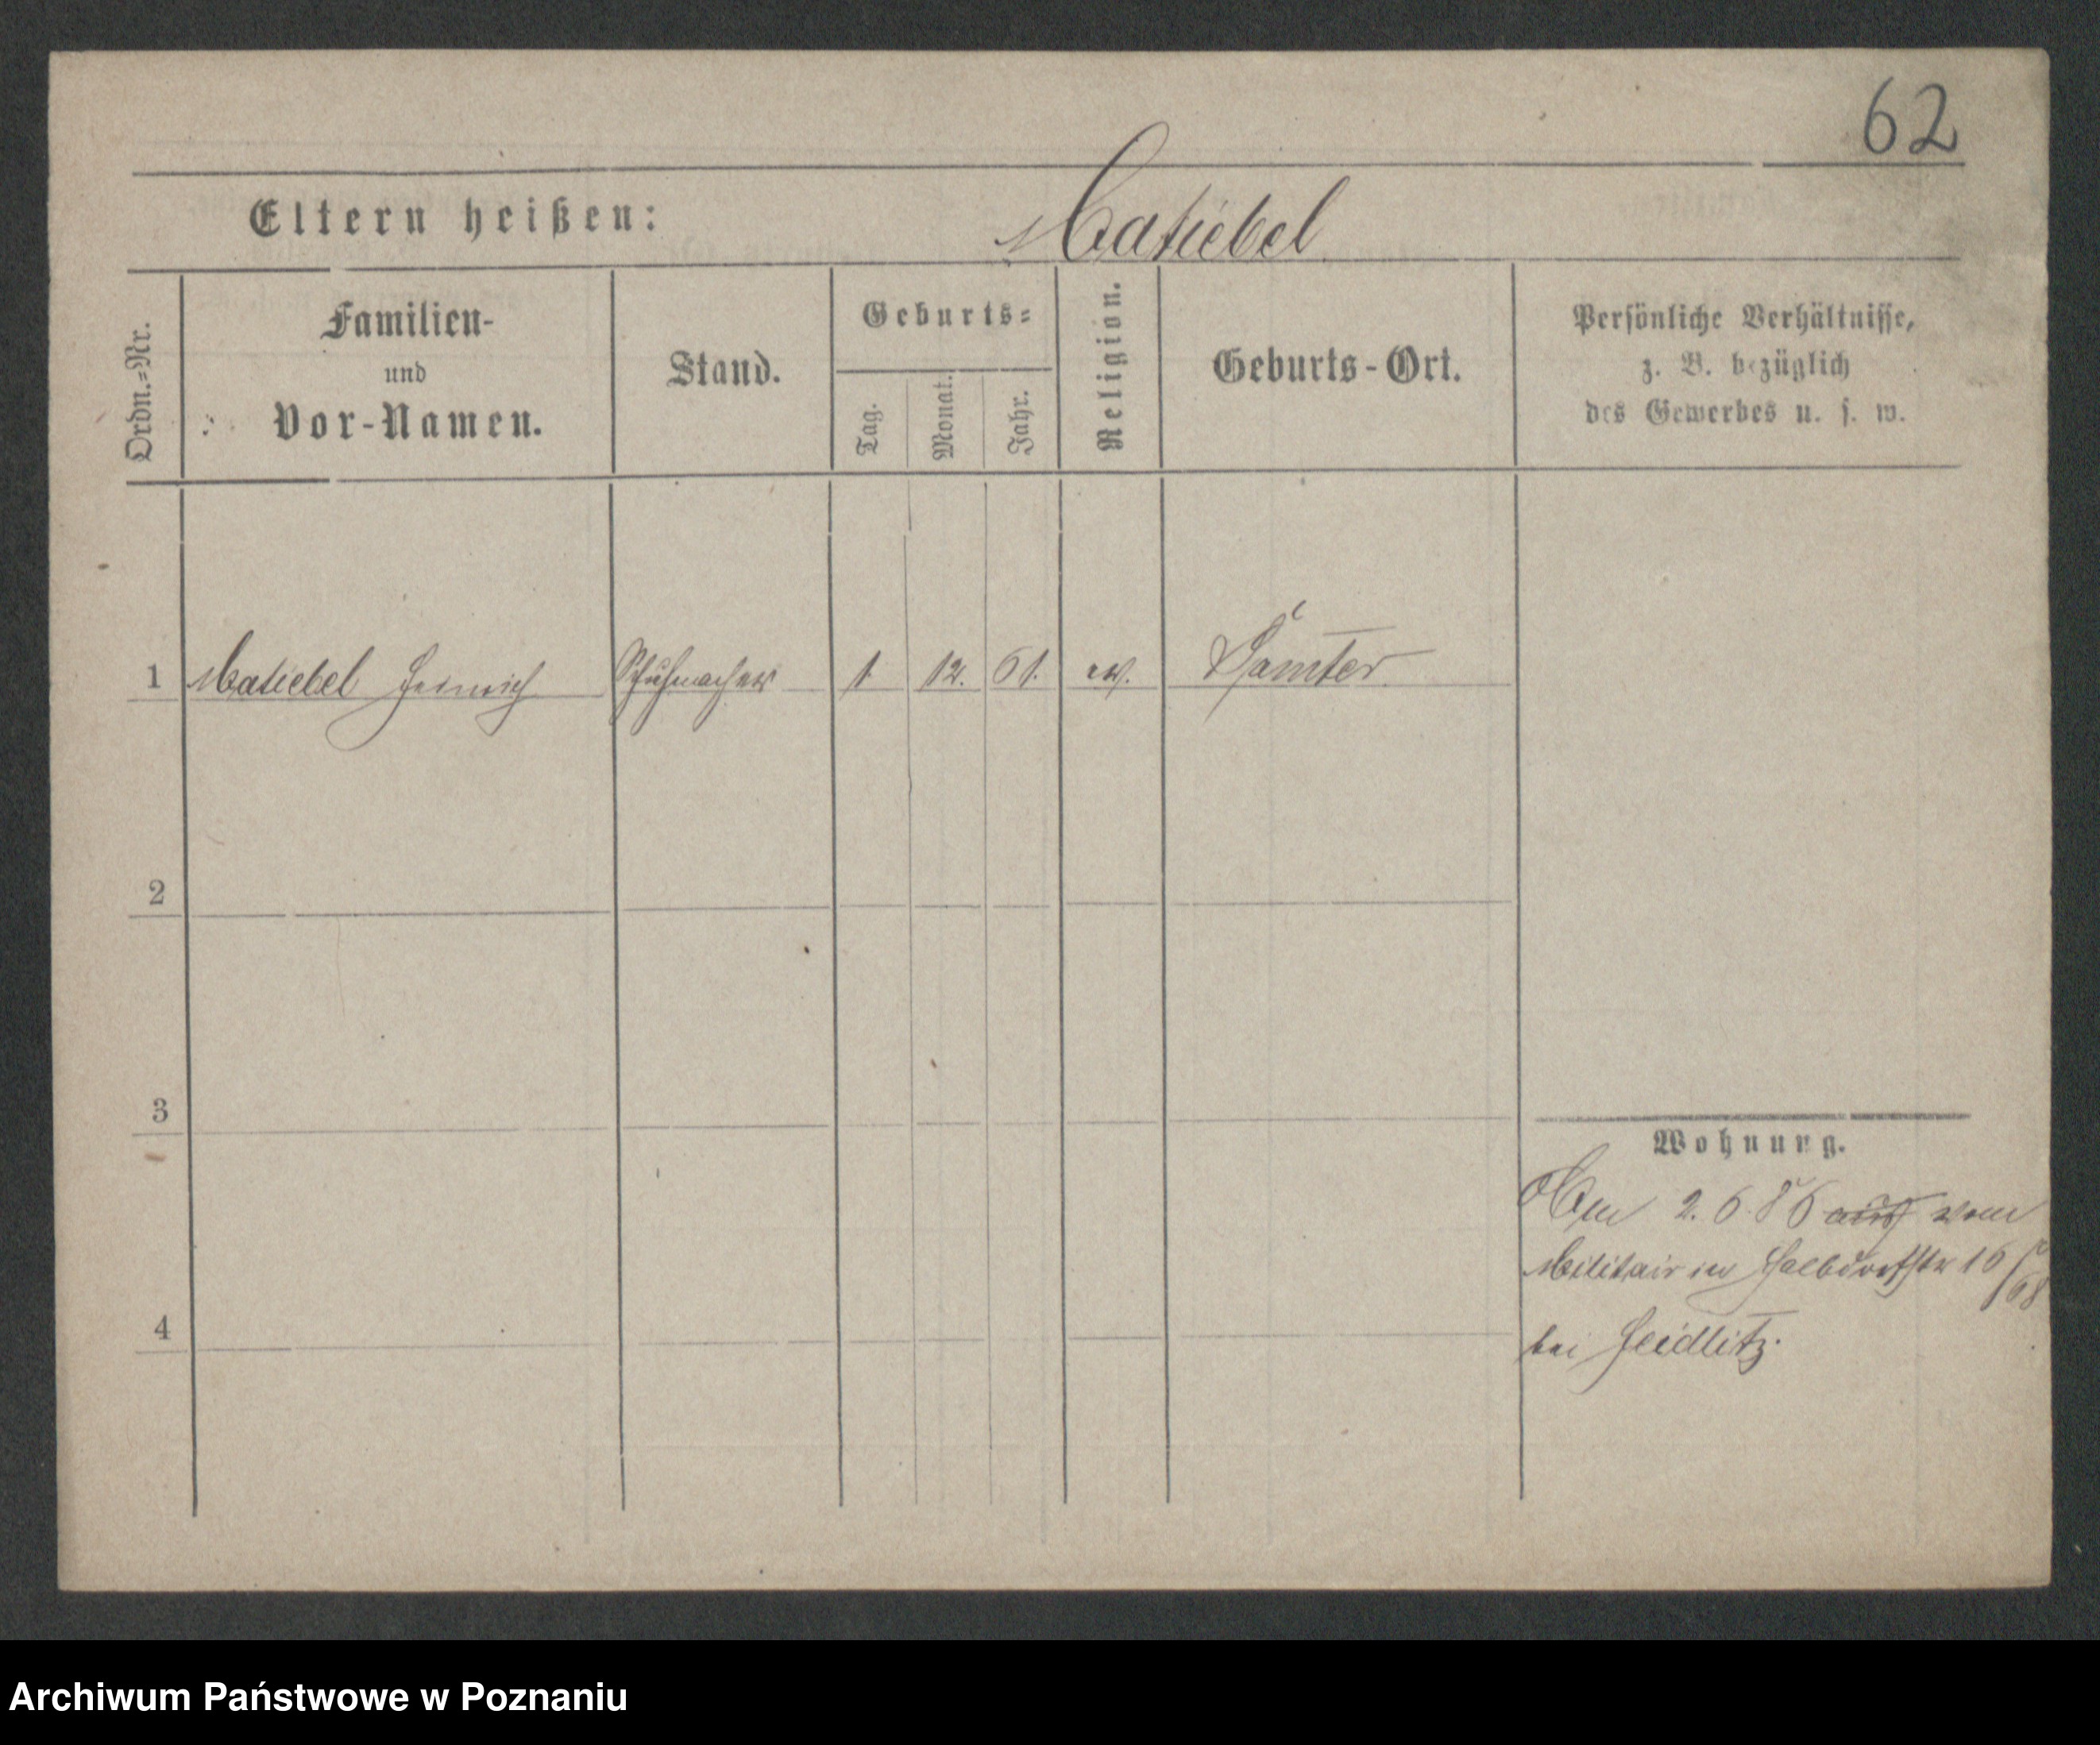 62
Eltern heißen: Matiebel
Ordn.-Nr.
Familien-
und
Vor-Namen.
Stand.
Geburts-
Tag.
Monat.
Jahr.
Religion.
Geburts-Ort.
Persönliche Verhältnisse,
z. B. bezüglich
des Gewerbes u. s. w.
1 Matiebel Heinrich Schuhmacher 1. 12. 61. ev. Samter
2
3
4
Wohnung.
Am 2. 6 86 aus vom
Militair in Halbdorfstr 16
bei Seidlitz.
Archiwum Państwowe w Poznaniu